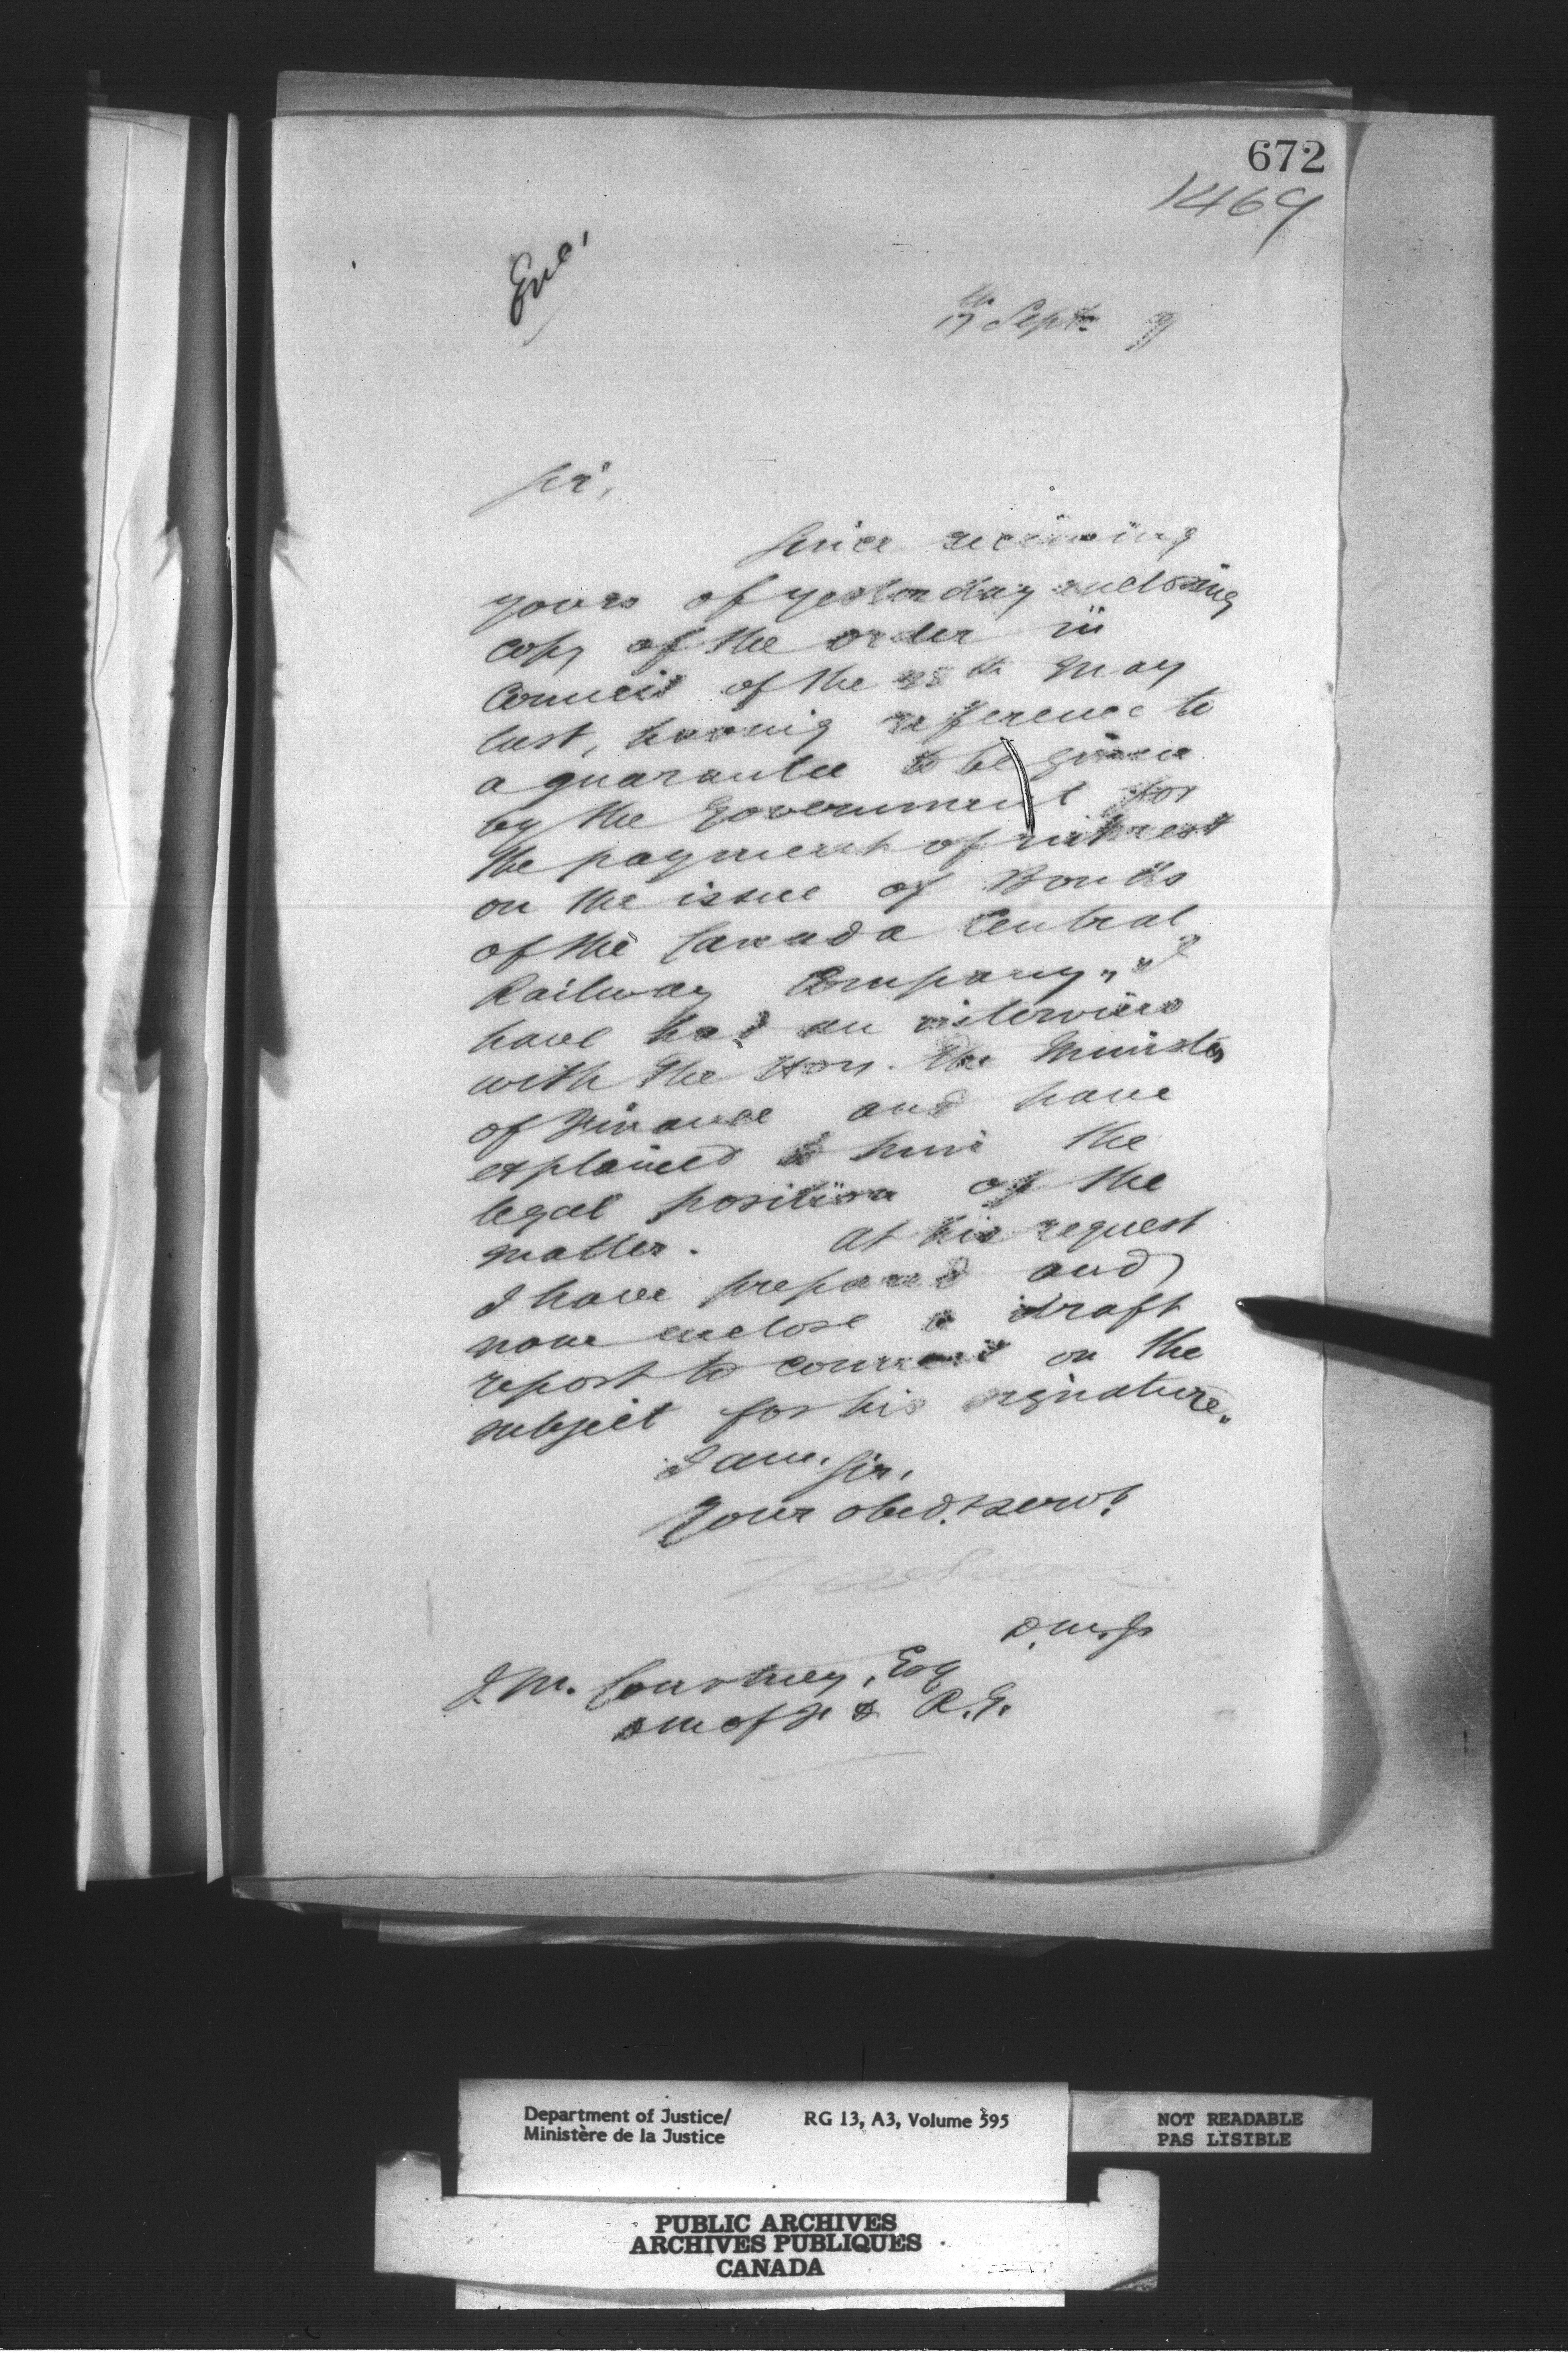 672
1469
Encl
17th Sept. 9
Sir,
Since receiving
yours of yesterday enclosing
copy of the order in
Council of the 28th May
last, having reference to
a guarantee to be given
by the Government for
the payment of interest
on the issue of Bonds
of the Canada Central
Railway Company, I
have had an interview
with The Hon. the Minister
of Finance and have
explained to him the
legal position of the
matter. At his request
I have prepared and
now enclose a draft
report to council on the
subject for his signature.
I am, Sir,
Your obedt servt
D.M.J.
J.M. Courtney, Esq
DM of F & R.G.
Department of Justice/
Ministère de la Justice
RG 13, A3, Volume 595
NOT READABLE
PAS LISIBLE
PUBLIC ARCHIVES
ARCHIVES PUBLIQUES
CANADA